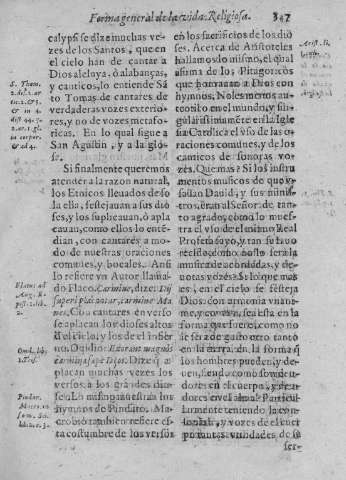 Forma general de la vida Religiosa. 347
calypsi se dize muchas ve-
zes de los Santos, que en
el cielo han de cantar a
Dios aleluya, ò alabanças,
y canticos, lo entiende Sã
to Tomas de cantares de
verdaderas vozes exterio-
res, y no de vozes metafo-
ricas. En lo qual sigue a
San Agustin, y a la glo-
sse.
Si finalmente queremos
atender a la razon natural,
los Etnicos lleuados de so
la ella, festejauan a sus dio
ses, y los suplicauan, ò apla
cauan, como ellos lo enté-
dian, con cantares a mo-
do de nuestras oraciones
comunes, y bocales. Assi
lo refiere vn Autor llama-
do Flaco. Carmine, dize: Dij
superi placantur, carmine Ma-
nes. Con cantares en verso
se aplacan los dioses altos
del cielo, y los de el infier
no. Ouidio:
carmina sæpe Dijs. Dize q̃ a-
placan muchas vezes los
versos a los grandes dio-
ses. Lo mismo muestra los
hymnos de Pindaro. Ma-
crobio tambien refiere es-
ta costumbre de los versos
en los sacrificios de los dio
ses. Acerca de Aristoteles
hallamos lo mismo, el qual
afirma de los Pitagoricos
que honrauan a Dios con
hymnos. No es menos au-
tentico en el mundo, y sin-
gularissimamente en la Igle
sia Catolica el vso de las o-
raciones comunes, y de los
canticos de sonoras vo-
zes. Que mas? Si los instru
mentos musicos de que v-
sauan Dauid, y sus minis-
tros, eran al Señor de tan-
to agrado, como lo mues-
tra el vso de el mismo Real
Profeta suyo, y tan
como no lo serà la
musica de and de-
uotas vozes? Si lo que mas
es, en el cielo se festeja
Dios con armonia
y esta en la
forma que fuere, como no
se serà de gusto otro tanto
en la tierra, en la forma q̃
los hombres pueden, y de-
uen, siendo como son due-
dores en el cuerpo, y dea-
dores en el alma? Particu-
larmente teniendo la con-
y vozes de el cuer
po tantas vtilidades de se
ser-
S. Thom.
2. dist. 2. ar
Platus ad
Aug. E-
pist. 2. lib.
2.
Ouid. lib.
Pindar.
Macro. in
Som. Sci.
lib. 2. c. 3.
Arist. li.